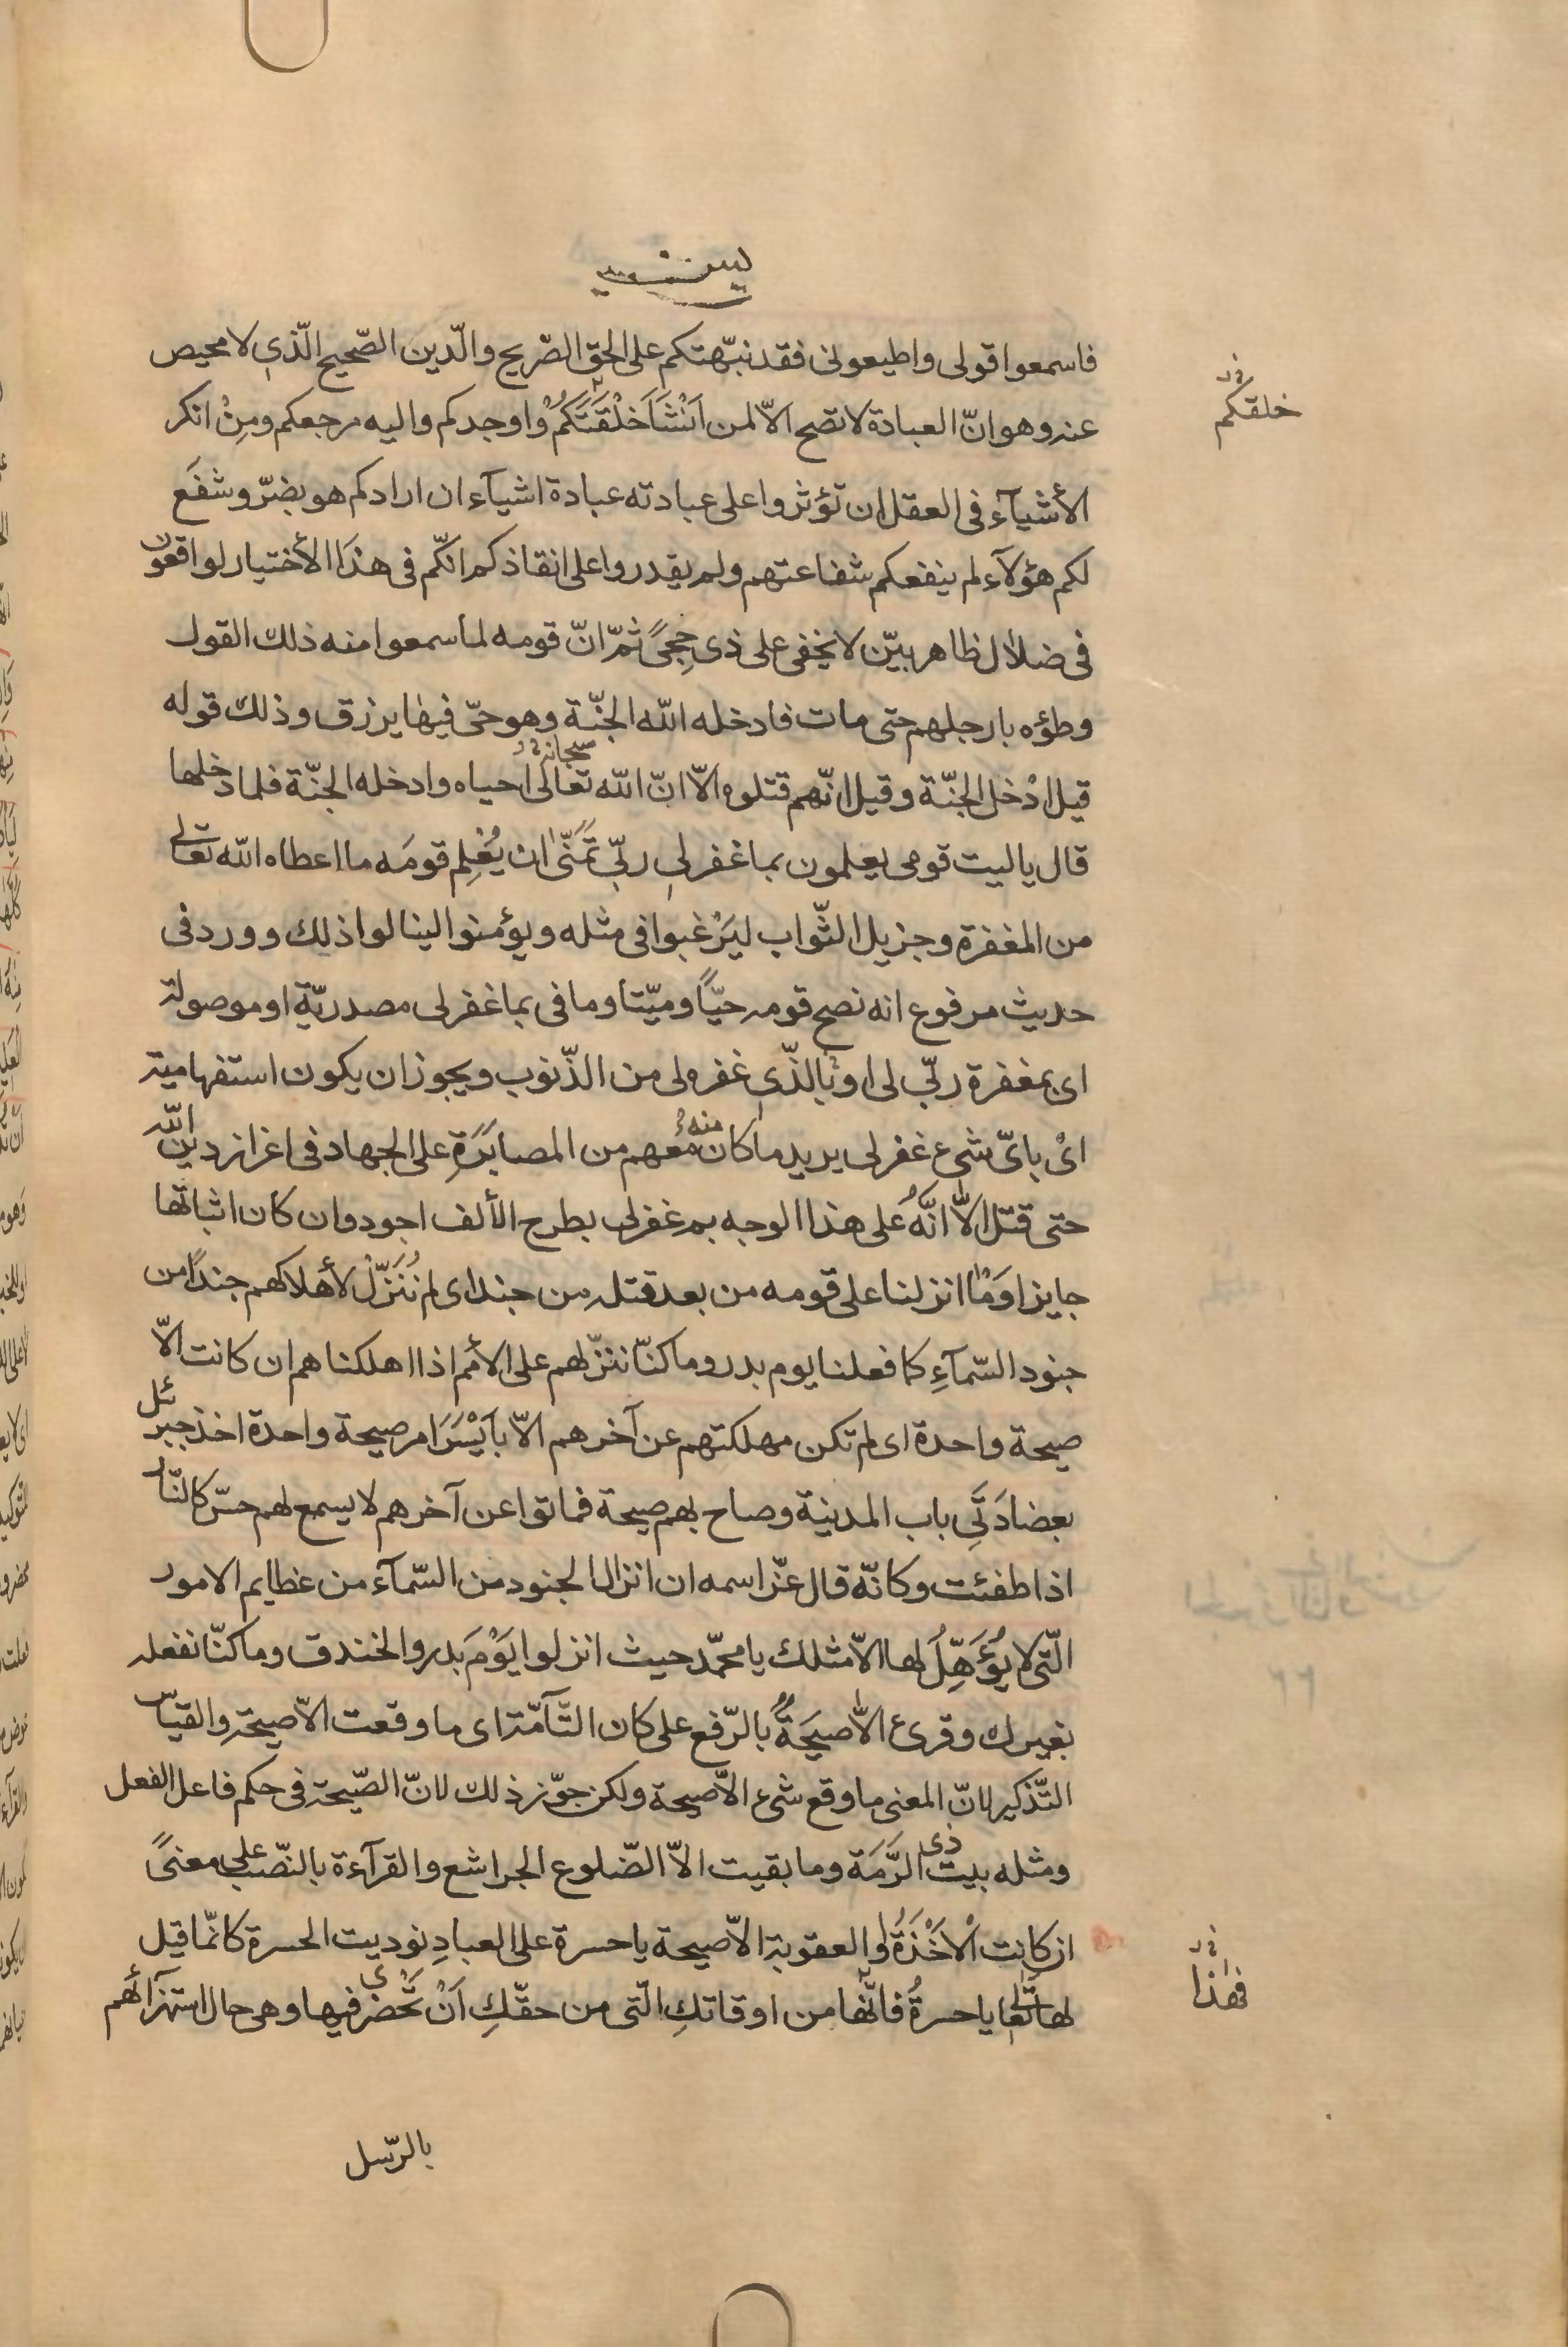 يس
فاسمعوا قولى واطيعونى فقد نبّهتكم على الحق الصّريح والدّين الصّحيح الّذى لا محيص
عنه وهو انّ العبادة لا تصح الّا لمن اَنْشَاَ خَلْقَتَكُمْ واوجدكم واليه مرجعكم ومِنْ انكر
خلقكم
الأشيآء فى العقل ان تؤثروا على عبادته عبادة اشيآء ان ارادكم هو بضرّ وشفَع
لكم هؤلآء لم ينفعكم شفاعتهم ولم يقدروا على انقاذكم انكّم فى هذا الأختيار لواقعون
فى ضلال ظاهر بيّن لا يخفى على ذى حِجىً ثمّ انّ قومه لما سمعوا منه ذلك القول
وطؤه بارجلهم حتى مات فادخله الله الجنّة وهو حىّ فيها يرزق وذلك قوله
قيل ادْخل الجنّة وقيل انّهم قتلوه الّا انّ الله سبحانه تعالى احياه وادخله الجنّة فلما دخلها
قال ياليت قومى يعلمون بما غفر لى ربّى تَمَنّىٰ ان يُعْلِم قومَه ما اعطاه الله تعالى
من المغفرة وجزيل الثّواب ليَرْغبوا فى مثله ويؤمنوا لينالوا ذلك وورد فى
حديث مرفوع انه نصح قومه حيّاً وميّتا وما فى بما غفر لى مصدريّة او موصولة
اى بمغفرة ربّى لى او بالذّى غفره لى من الذّنوب ويجوز ان يكون استفهامية
اىْ باىّ شىء غفر لى يريد ما كان منه معهم من المصابَرَةِ على الجهاد فى اغزاز دين الله
حتى قتل الّا انَّهُ على هذا الوجه بم غفر لى بطرح الألف اجود وان كان اثباتها
جايزا وَمٰا انزلنا على قومه من بعد قتله مِن جند اى لم نُنَزّلْ لأهلاكهم جنداً من
جنود السّمآءِ كما فعلنا يوم بدر وما كنّا ننزّلهم على الأمم اذا اهلكناهم ان كانت الّا
صيحة واحدة اى لم تكن مهلكتهم عن آخرهم الّا باَيْسَرَ امر صيحة واحدة اخذ جبرئل
بعضادَتَى باب المدنية وصاح بهم صيحة فماتوا عن آخرهم لا يسمع لهم حسّ كالنّار
اذا طفئت وكانّه قال عزّ اسمه ان انزال الجنود من السّمآء من عظايم الامور
الّتى لا يُؤَهِّلُ لها الّا مثلك يا محمّد حيث انزلوا يَوْمَ بدر والخندق وما كنّا نفعله
بغيرك وقرئ الّا صيحَةٌ بالرّفع على كان التّآمّة اى ما وقعت الّا صيحة والقياس
التّذكير لانّ المعنى ما وقع شىء الّا صيحة ولكن جوّز ذلك لانّ الصّيحة فى حكم فاعل الفعل
ومثله بيت ذى الرَّمَة وما بقيت الّا الضّلوع الجراشع والقرآءة بالنّصب على معنىً
ان كانت اْلاَخْذَةُ او العقوبة الّا صيحة يا حسرة على العبادِ نوديت الحسرة كانّما قيل
لها تعالى يا حسرةُ فانّها من اوقاتكِ الّتى من حقّكِ اَنْ تَحْضرى فيها وهى حال استهزآئهم
فهذا
بالرّسل